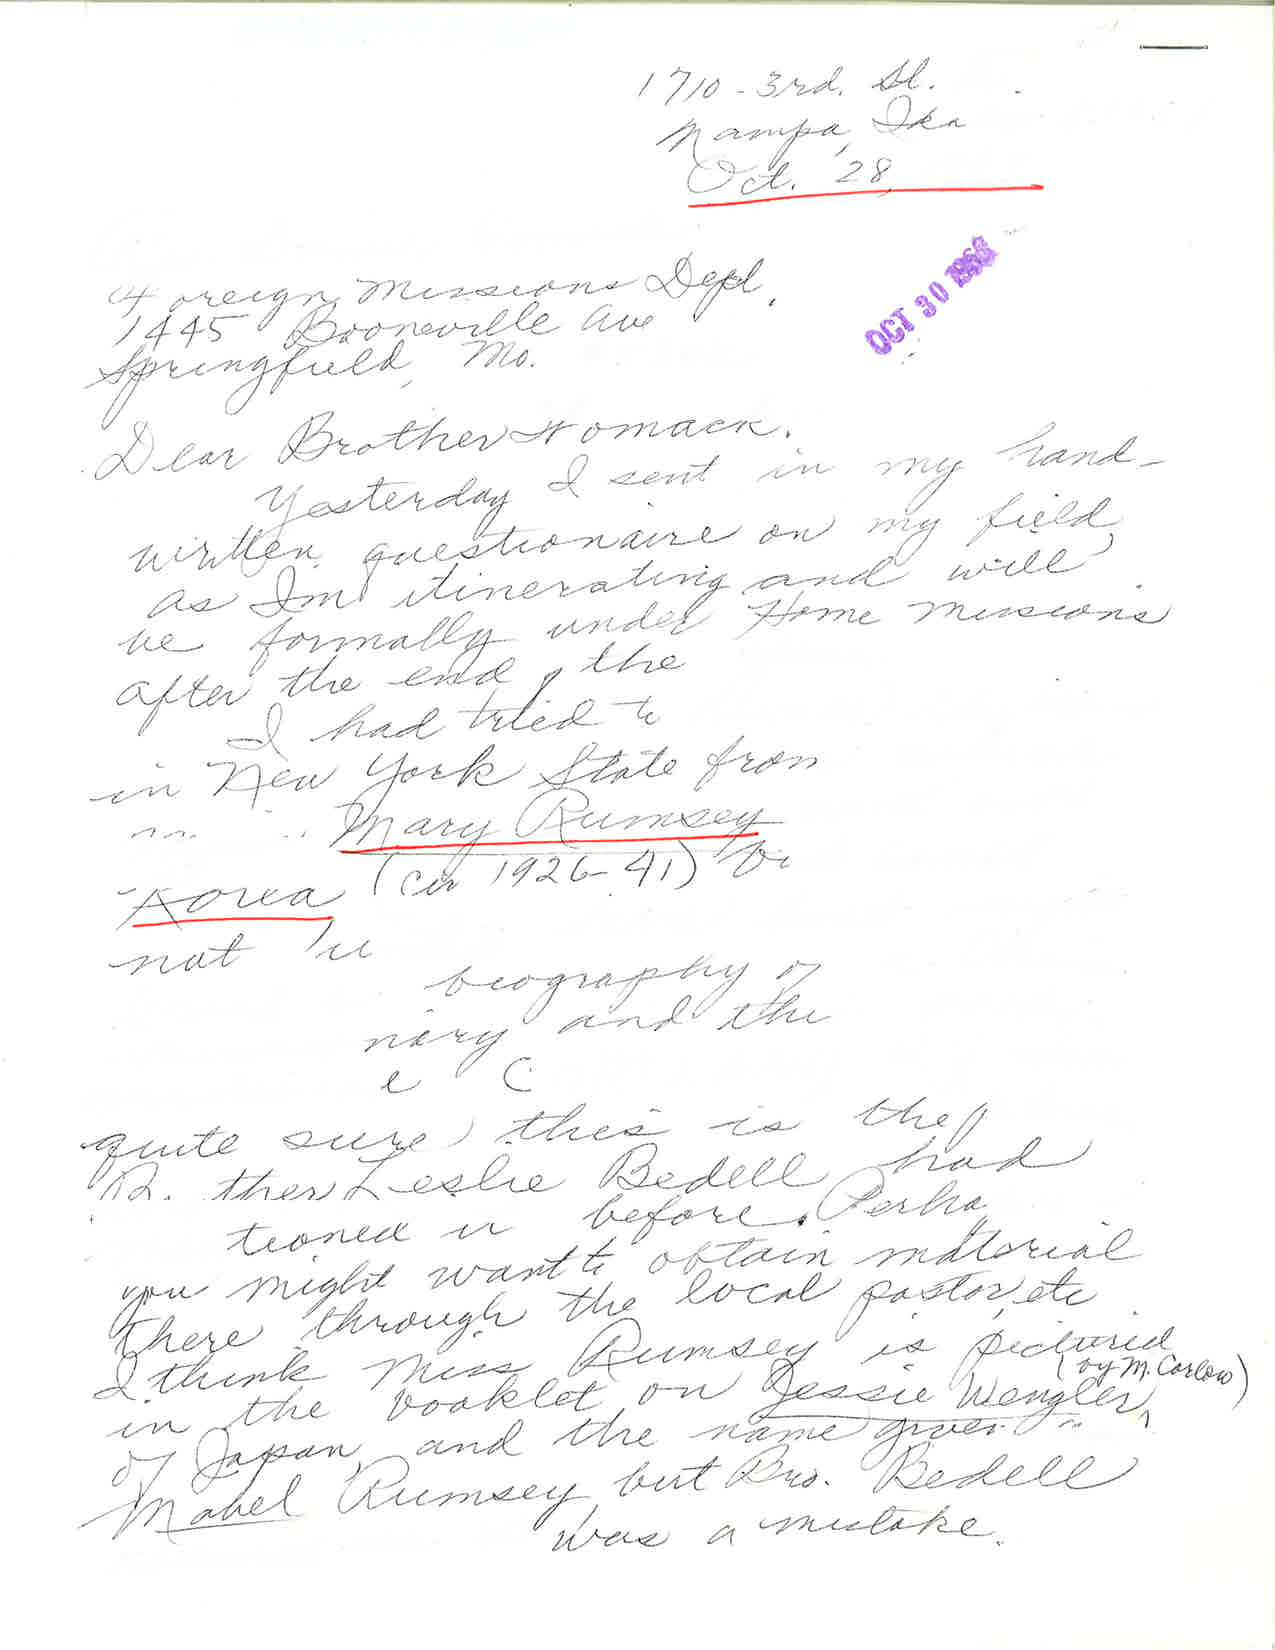 1710 - 3rd. St.
Nampa, Ida
Oct. 28,
OCT 30 1968
Foreign Missions Dept.
1445 Booneville Ave
Springfield, Mo.
Dear Brother Womack.
Yesterday I sent in my hand-
written questionaire on my field,
as Im itinerating and will
be formally under Home Missions
after the end of the
I had tried to
in New York State from
Mary Rumsey
Korea (cir 1926-41)
not
biography of
nary and the
e C
quite sure this is the
ther Leslie Bedell had
tioned before. Perha
you might want to obtain material
there through the local pastor, etc
I think Miss Rumsey is pictured
(by M. Carlow)
in the booklet on Jessie Wengler,
of Japan, and the name given
Mabel Rumsey, but Bro. Bedell
was a mistake.